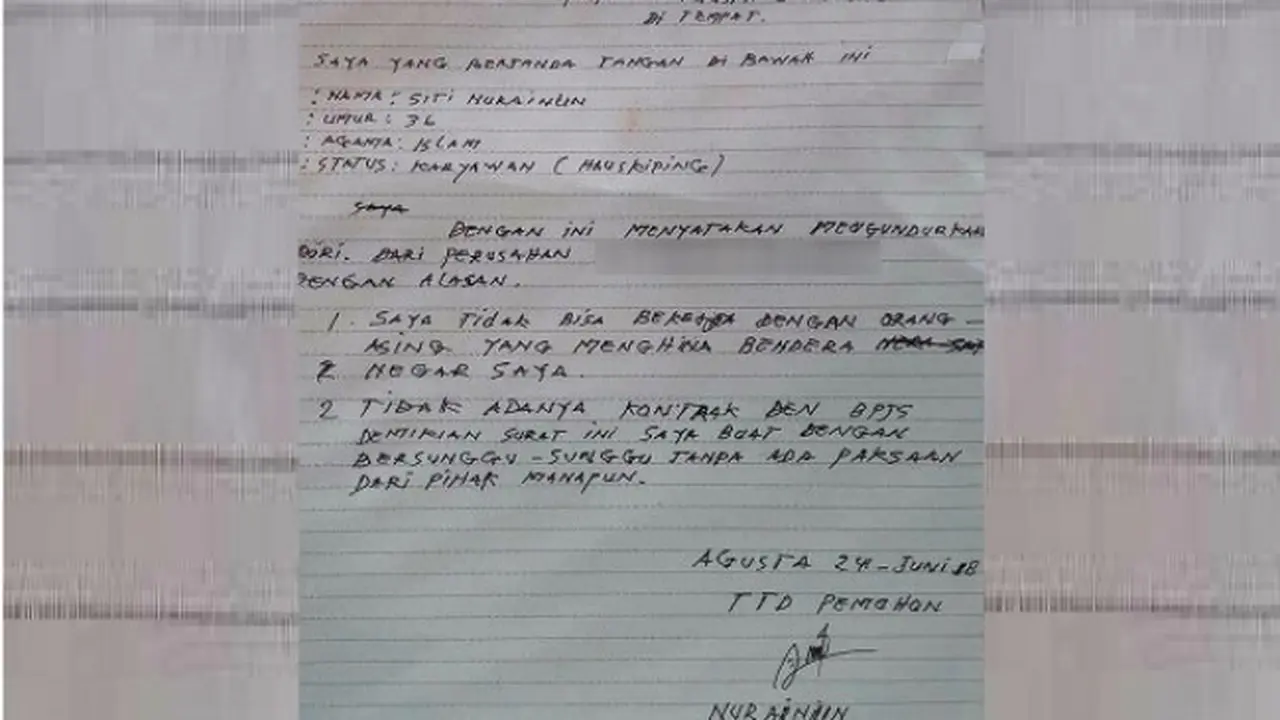 DI TEMPAT.
SAYA YANG BERTANDA TANGAN DI BAWAH INI
: NAMA : SITI NURAINUN
: UMUR : 36
: AGAMA : ISLAM
: STATUS : KARYAWAN ( HAUSKIPING)
SAYA
DENGAN INI MENYATAKAN MENGUNDURKAN
DIRI. DARI PERUSAHAN
DENGAN ALASAN.
1. SAYA TIDAK BISA BEKERJA DENGAN ORANG -
ASING YANG MENGHINA BENDERA
NEGAR SAYA.
2 TIDAK ADANYA KONTRAK DEN BPJS
DEMIKIAN SURAT INI SAYA BUAT DENGAN
BERSUNGGU - SUNGGU TANPA ADA PAKSAAN
DARI PIHAK MANAPUN.
AGUSTA 24 - JUNI 18
TTD PEMOHON
NURAINUN